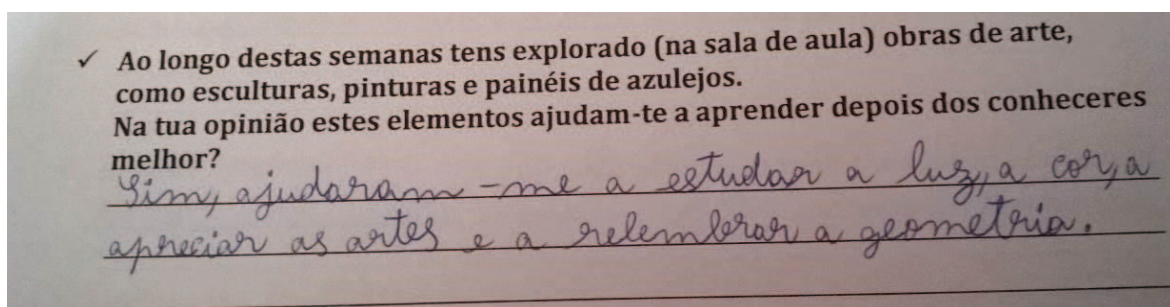 ✓ Ao longo destas semanas tens explorado (na sala de aula) obras de arte,
como esculturas, pinturas e painéis de azulejos.
Na tua opinião estes elementos ajudam-te a aprender depois dos conheceres
melhor?
Sim, ajudaram-me a estudar a luz, a cor, a
apreciar as artes e a relembrar a geometria.